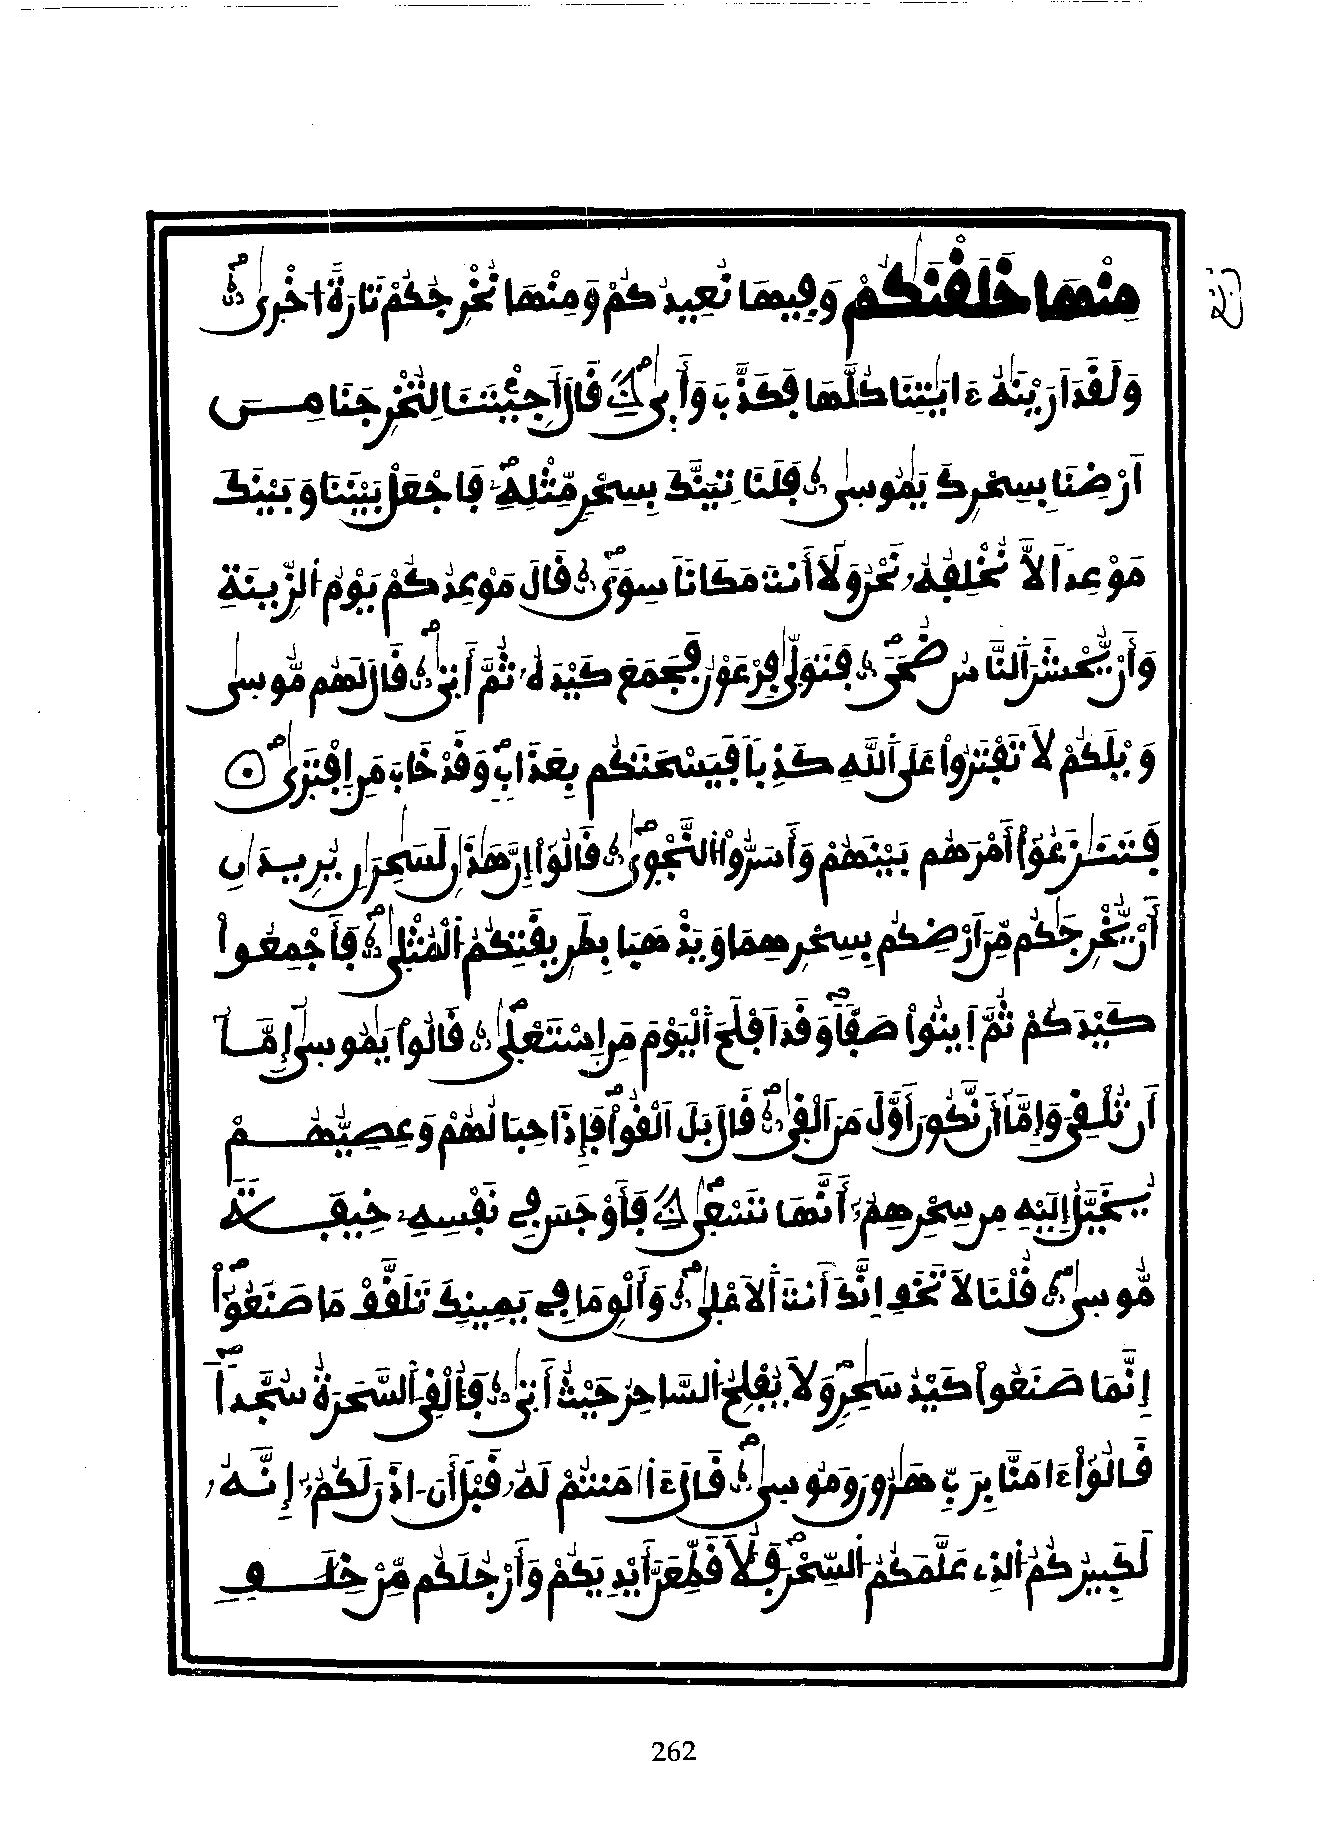 مِنْهَا خَلَقْنَٰكُمْ وَفِيهَا نُعِيدُكُمْ وَمِنْهَا نُخْرِجُكُمْ تَارَةً اخْرَىٰ
وَلَقَدَ اَرَيْنَٰهُ ءَايَٰتِنَا كُلَّهَا فَكَذَّبَ وَأَبَىٰ قَالَ أَجِئْتَنَا لِتُخْرِجَنَا مِنَ
اَرْضِنَا بِسِحْرِكَ يَٰمُوسَىٰ فَلَنَاتِيَنَّكَ بِسِحْرٍ مِّثْلِهِۦ فَاجْعَلْ بَيْنَنَا وَبَيْنَكَ
مَوْعِداً لَّا نُخْلِفُهُۥ نَحْنُ وَلَا أَنتَ مَكَاناً سِوىً قَالَ مَوْعِدُكُمْ يَوْمُ الزِّينَةِ
وَأَنْ يُّحْشَرَ النَّاسُ ضُحىً فَتَوَلَّىٰ فِرْعَوْنُ فَجَمَعَ كَيْدَهُۥ ثُمَّ أَتَىٰ قَالَ لَهُم مُّوسَىٰ
وَيْلَكُمْ لَا تَفْتَرُواْ عَلَى اللَّهِ كَذِباً فَيَسْحَتَكُم بِعَذَابٍ وَقَدْ خَابَ مَنِ اِفْتَرَىٰ
فَتَنَٰزَعُواْ أَمْرَهُم بَيْنَهُمْ وَأَسَرُّواْ النَّجْوَىٰ قَالُواْ إِنَّ هَٰذَٰنِ لَسَٰحِرَٰنِ يُرِيدَانِ
أَنْ يُّخْرِجَٰكُم مِّنَ اَرْضِكُم بِسِحْرِهِمَا وَيَذْهَبَا بِطَرِيقَتِكُمُ الْمُثْلَىٰ فَأَجْمِعُواْ
كَيْدَكُمْ ثُمَّ اَيتُواْ صَفّاً وَقَدَ اَفْلَحَ اَلْيَوْمَ مَنِ اِسْتَعْلَىٰ قَالُواْ يَٰمُوسَىٰ إِمَّا
أَن تُلْقِيَ وَإِمَّا أَن نَّكُونَ أَوَّلَ مَنَ اَلْقَىٰ قَالَ بَلَ اَلْقُواْ فَإِذَا حِبَالُهُمْ وَعِصِيُّهُمْ
يُخَيَّلُ إِلَيْهِ مِن سِحْرِهِمُۥ أَنَّهَا تَسْعَىٰ فَأَوْجَسَ فِي نَفْسِهِۦ خِيفَةً
مُّوسَىٰ قُلْنَا لَا تَخَفِ اِنَّكَ أَنتَ اَلَاعْلَىٰ وَأَلْقِ مَا فِي يَمِينِكَ تَلَقَّفْ مَا صَنَعُواْ
إِنَّمَا صَنَعُواْ كَيْدُ سَٰحِرٍ وَلَا يُفْلِحُ السَّاحِرُ حَيْثُ أَتَىٰ فَأُلْقِيَ اَلسَّحَرَةُ سُجَّداً
قَالُواْ ءَامَنَّا بِرَبِّ هَٰرُونَ وَمُوسَىٰ قَالَ ءَا۬مَنتُمْ لَهُۥ قَبْلَ أَنَ اٰذَنَ لَكُمُۥ إِنَّهُۥ
لَكَبِيرُكُمُ اُلذِى عَلَّمَكُمُ السِّحْرَ فَلَأُقَطِّعَنَّ أَيْدِيَكُمْ وَأَرْجُلَكُم مِّنْ خِلَٰفٍ
262